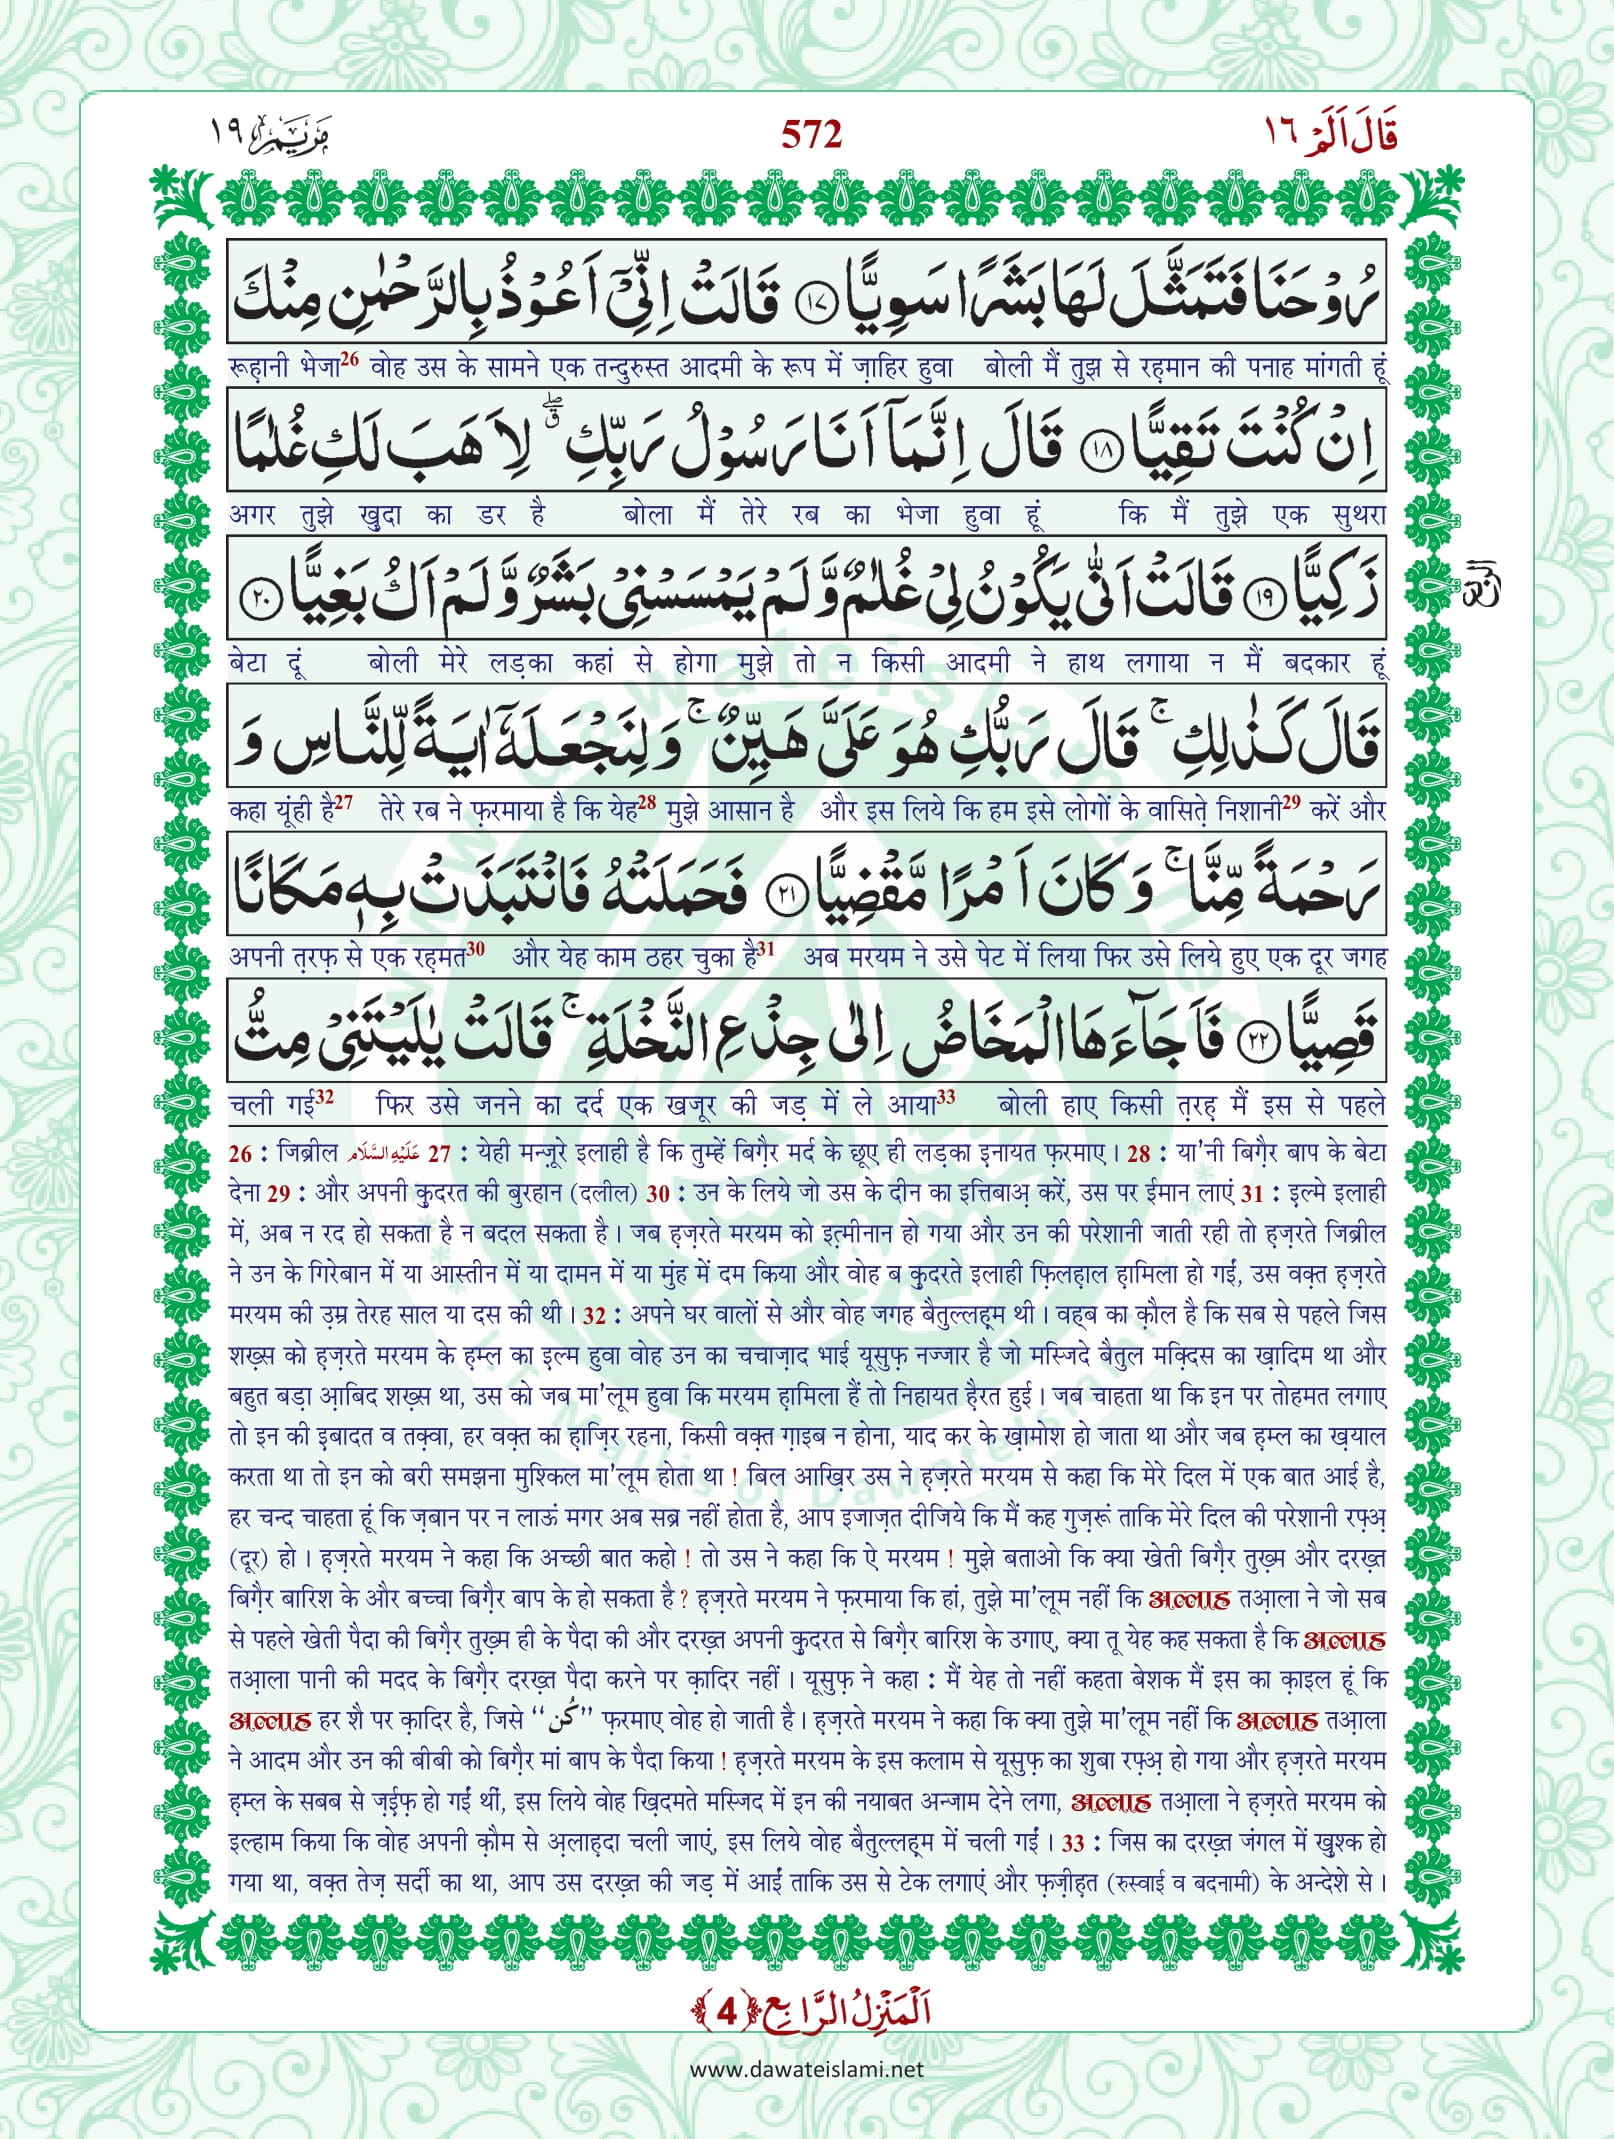 قَالَ اَلَمْ ١٦
572
مَرْيَم ١٩
رُوْحَنَا فَتَمَثَّلَ لَهَا بَشَرًا سَوِیًّا ﴿١٧﴾ قَالَتْ اِنِّیْۤ اَعُوْذُ بِالرَّحْمٰنِ مِنْكَ
रूह़ानी भेजा26 वोह उस के सामने एक तन्दुरुस्त आदमी के रूप में ज़ाहिर हुवा बोली मैं तुझ से रह़मान की पनाह मांगती हूं
اِنْ كُنْتَ تَقِیًّا ﴿١٨﴾ قَالَ اِنَّمَاۤ اَنَا رَسُوْلُ رَبِّكِ ۖۗ لِاَهَبَ لَكِ غُلٰمًا
अगर तुझे ख़ुदा का डर है बोला मैं तेरे रब का भेजा हुवा हूं कि मैं तुझे एक सुथरा
زَكِیًّا ﴿١٩﴾ قَالَتْ اَنّٰى یَكُوْنُ لِیْ غُلٰمٌ وَّ لَمْ یَمْسَسْنِیْ بَشَرٌ وَّ لَمْ اَكُ بَغِیًّا ﴿٢٠﴾
बेटा दूं बोली मेरे लड़का कहां से होगा मुझे तो न किसी आदमी ने हाथ लगाया न मैं बदकार हूं
قَالَ كَذٰلِكِ ۚ قَالَ رَبُّكِ هُوَ عَلَیَّ هَیِّنٌ ۚ وَ لِنَجْعَلَهٗۤ اٰیَةً لِّلنَّاسِ وَ
कहा यूंही है27 तेरे रब ने फ़रमाया है कि येह28 मुझे आसान है और इस लिये कि हम इसे लोगों के वासित़े निशानी29 करें और
رَحْمَةً مِّنَّا ۚ وَ كَانَ اَمْرًا مَّقْضِیًّا ﴿٢١﴾ فَحَمَلَتْهُ فَانْتَبَذَتْ بِهٖ مَكَانًا
अपनी त़रफ़ से एक रह़मत30 और येह काम ठहर चुका है31 अब मरयम ने उसे पेट में लिया फिर उसे लिये हुए एक दूर जगह
قَصِیًّا ﴿٢٢﴾ فَاَجَآءَهَا الْمَخَاضُ اِلٰى جِذْعِ النَّخْلَةِ ۚ قَالَتْ یٰلَیْتَنِیْ مِتُّ
चली गई32 फिर उसे जनने का दर्द एक खजूर की जड़ में ले आया33 बोली हाए किसी त़रह़ मैं इस से पहले
26 : जिब्रील عَلَيْهِ السَّلَام 27 : येही मन्ज़ूरे इलाही है कि तुम्हें बिग़ैर मर्द के छूए ही लड़का इ़नायत फ़रमाए। 28 : या'नी बिग़ैर बाप के बेटा
देना 29 : और अपनी कु़दरत की बुरहान (दलील) 30 : उन के लिये जो उस के दीन का इत्तिबाअ़ करें, उस पर ईमान लाएं 31 : इ़ल्मे इलाही
में, अब न रद हो सकता है न बदल सकता है। जब ह़ज़रते मरयम को इत़्मीनान हो गया और उन की परेशानी जाती रही तो ह़ज़रते जिब्रील
ने उन के गिरेबान में या आस्तीन में या दामन में या मुंह में दम किया और वोह ब कु़दरते इलाही फ़िलह़ाल ह़ामिला हो गईं, उस वक़्त ह़ज़रते
मरयम की उ़म्र तेरह साल या दस की थी। 32 : अपने घर वालों से और वोह जगह बैतुल्लह़्म थी। वह्ब का क़ौल है कि सब से पहले जिस
शख़्स को ह़ज़रते मरयम के ह़म्ल का इ़ल्म हुवा वोह उन का चचाज़ाद भाई यूसुफ़ नज्जार है जो मस्जिदे बैतुल मक़्दिस का ख़ादिम था और
बहुत बड़ा आ़बिद शख़्स था, उस को जब मा'लूम हुवा कि मरयम ह़ामिला हैं तो निहायत ह़ैरत हुई। जब चाहता था कि इन पर तोहमत लगाए
तो इन की इ़बादत व तक़्वा, हर वक़्त का ह़ाज़िर रहना, किसी वक़्त ग़ाइब न होना, याद कर के ख़ामोश हो जाता था और जब ह़म्ल का ख़याल
करता था तो इन को बरी समझना मुश्किल मा'लूम होता था ! बिल आख़िर उस ने ह़ज़रते मरयम से कहा कि मेरे दिल में एक बात आई है,
हर चन्द चाहता हूं कि ज़बान पर न लाऊं मगर अब सब्र नहीं होता है, आप इजाज़त दीजिये कि मैं कह गुज़रूं ताकि मेरे दिल की परेशानी रफ़्अ़
(दूर) हो। ह़ज़रते मरयम ने कहा कि अच्छी बात कहो ! तो उस ने कहा कि ऐ मरयम ! मुझे बताओ कि क्या खेती बिग़ैर तुख़्म और दरख़्त
बिग़ैर बारिश के और बच्चा बिग़ैर बाप के हो सकता है ? ह़ज़रते मरयम ने फ़रमाया कि हां, तुझे मा'लूम नहीं कि अल्लाह तआ़ला ने जो सब
से पहले खेती पैदा की बिग़ैर तुख़्म ही के पैदा की और दरख़्त अपनी कु़दरत से बिग़ैर बारिश के उगाए, क्या तू येह कह सकता है कि अल्लाह
तआ़ला पानी की मदद के बिग़ैर दरख़्त पैदा करने पर क़ादिर नहीं। यूसुफ़ ने कहा : मैं येह तो नहीं कहता बेशक मैं इस का क़ाइल हूं कि
अल्लाह हर शै पर क़ादिर है, जिसे “كُن” फ़रमाए वोह हो जाती है। ह़ज़रते मरयम ने कहा कि क्या तुझे मा'लूम नहीं कि अल्लाह तआ़ला
ने आदम और उन की बीबी को बिग़ैर मां बाप के पैदा किया ! ह़ज़रते मरयम के इस कलाम से यूसुफ़ का शुबा रफ़्अ़ हो गया और ह़ज़रते मरयम
ह़म्ल के सबब से ज़ई़फ़ हो गईं थीं, इस लिये वोह ख़िदमते मस्जिद में इन की नयाबत अन्जाम देने लगा, अल्लाह तआ़ला ने ह़ज़रते मरयम को
इल्हाम किया कि वोह अपनी क़ौम से अ़लाह़दा चली जाएं, इस लिये वोह बैतुल्लह़्म में चली गईं। 33 : जिस का दरख़्त जंगल में ख़ुश्क हो
गया था, वक़्त तेज़ सर्दी का था, आप उस दरख़्त की जड़ में आईं ताकि उस से टेक लगाएं और फ़ज़ीह़त (रुस्वाई व बदनामी) के अन्देशे से।
اَلْمَنْزِلُ الرَّابِع ﴿4﴾
www.dawateislami.net